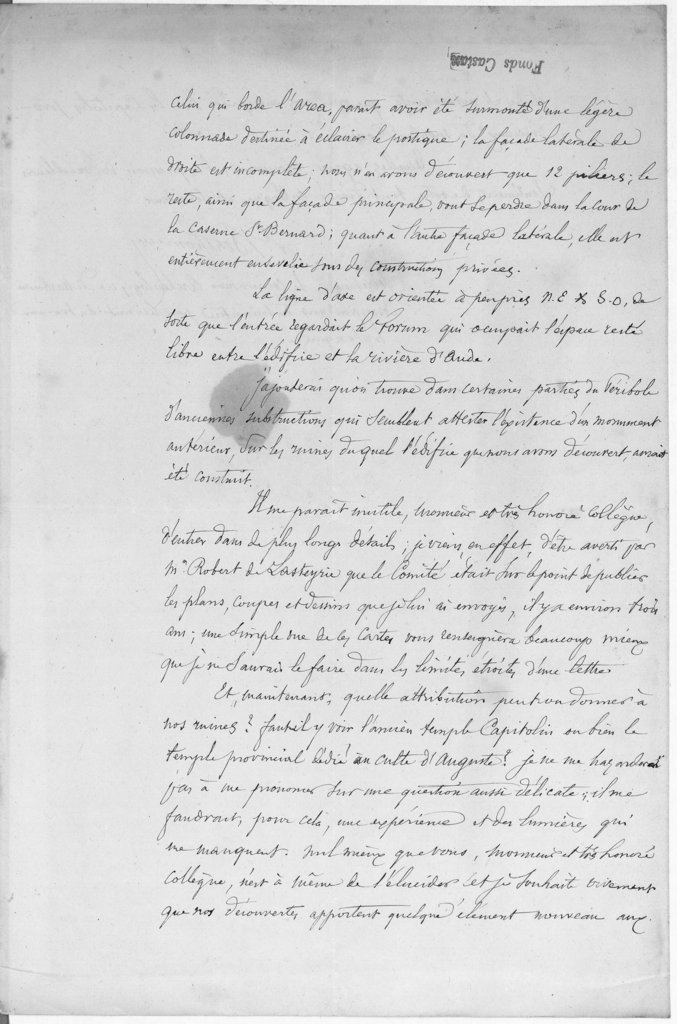 Fonds Castan
celui qui borde l'area, paraît avoir été surmonté d'une légère
colonnade destinée à éclairer le portique ; la façade latérale de
droite est incomplète ; nous n'en avons découvert que 12 piliers ; le
reste, ainsi que la façade principale, vont se perdre dans la cour de
la caserne St Bernard ; quant à l'autre façade latérale, elle est
entièrement ensevelie sous des constructions privées.
La ligne d'axe est orientée à peu près N.E & S.O, de
sorte que l'entrée regardait le forum qui occupait l'espace resté
libre entre l'édifice et la rivière d'Aude.
J'ajouterai qu'on trouve dans certaines parties du Péribole
d'anciennes substructions qui semblent attester l'existence d'un monument
antérieur, sur les ruines duquel l'édifice que nous avons découvert, aurait
été construit.
Il me paraît inutile, monsieur et très honoré collègue,
d'entrer dans de plus longs détails ; je viens, en effet, d'être averti par
Mr Robert de Lasteyrie que le Comité était sur le point de publier
les plans, coupes et dessins que je lui ai envoyés, il y a environ trois
ans ; une simple vue de ces cartes vous renseignera beaucoup mieux
que je ne saurais le faire dans les limites étroites d'une lettre
Et, maintenant, quelle attribution peut-on donner à
nos ruines ? faut-il y voir l'ancien temple Capitolin ou bien le
temple provincial dédié au culte d'Auguste ? je ne me hazarderai
pas à me prononcer sur une question aussi délicate ; il me
faudrait, pour cela, une expérience et des lumières qui
me manquent. nul mieux que vous, monsieur et très honoré
collègue, n'est à même de l'élucider et je souhaite vivement
que nos découvertes apportent quelque élément nouveau aux